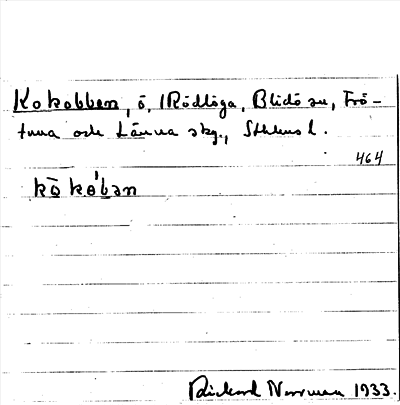 Kokobben, ö, Rödlöga, Blidö sn, Frö-
tuna och Länna skg., Sthlms l.
464
kō̱ kóḇən
Rickard Norrman 1933.